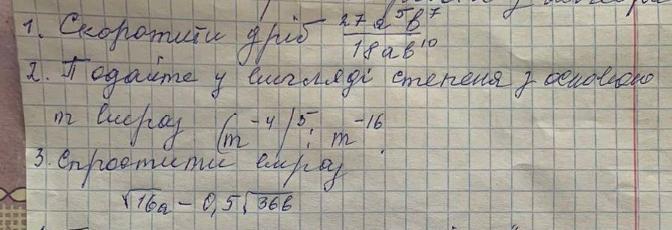 1. Скоротити дріб 27a⁵b⁷/18ab¹⁰
2. Подайте у вигляді степеня з основою
m вираз (m⁻⁴)⁵ : m⁻¹⁶
3. Спростити вираз
√16a − 0,5√36b